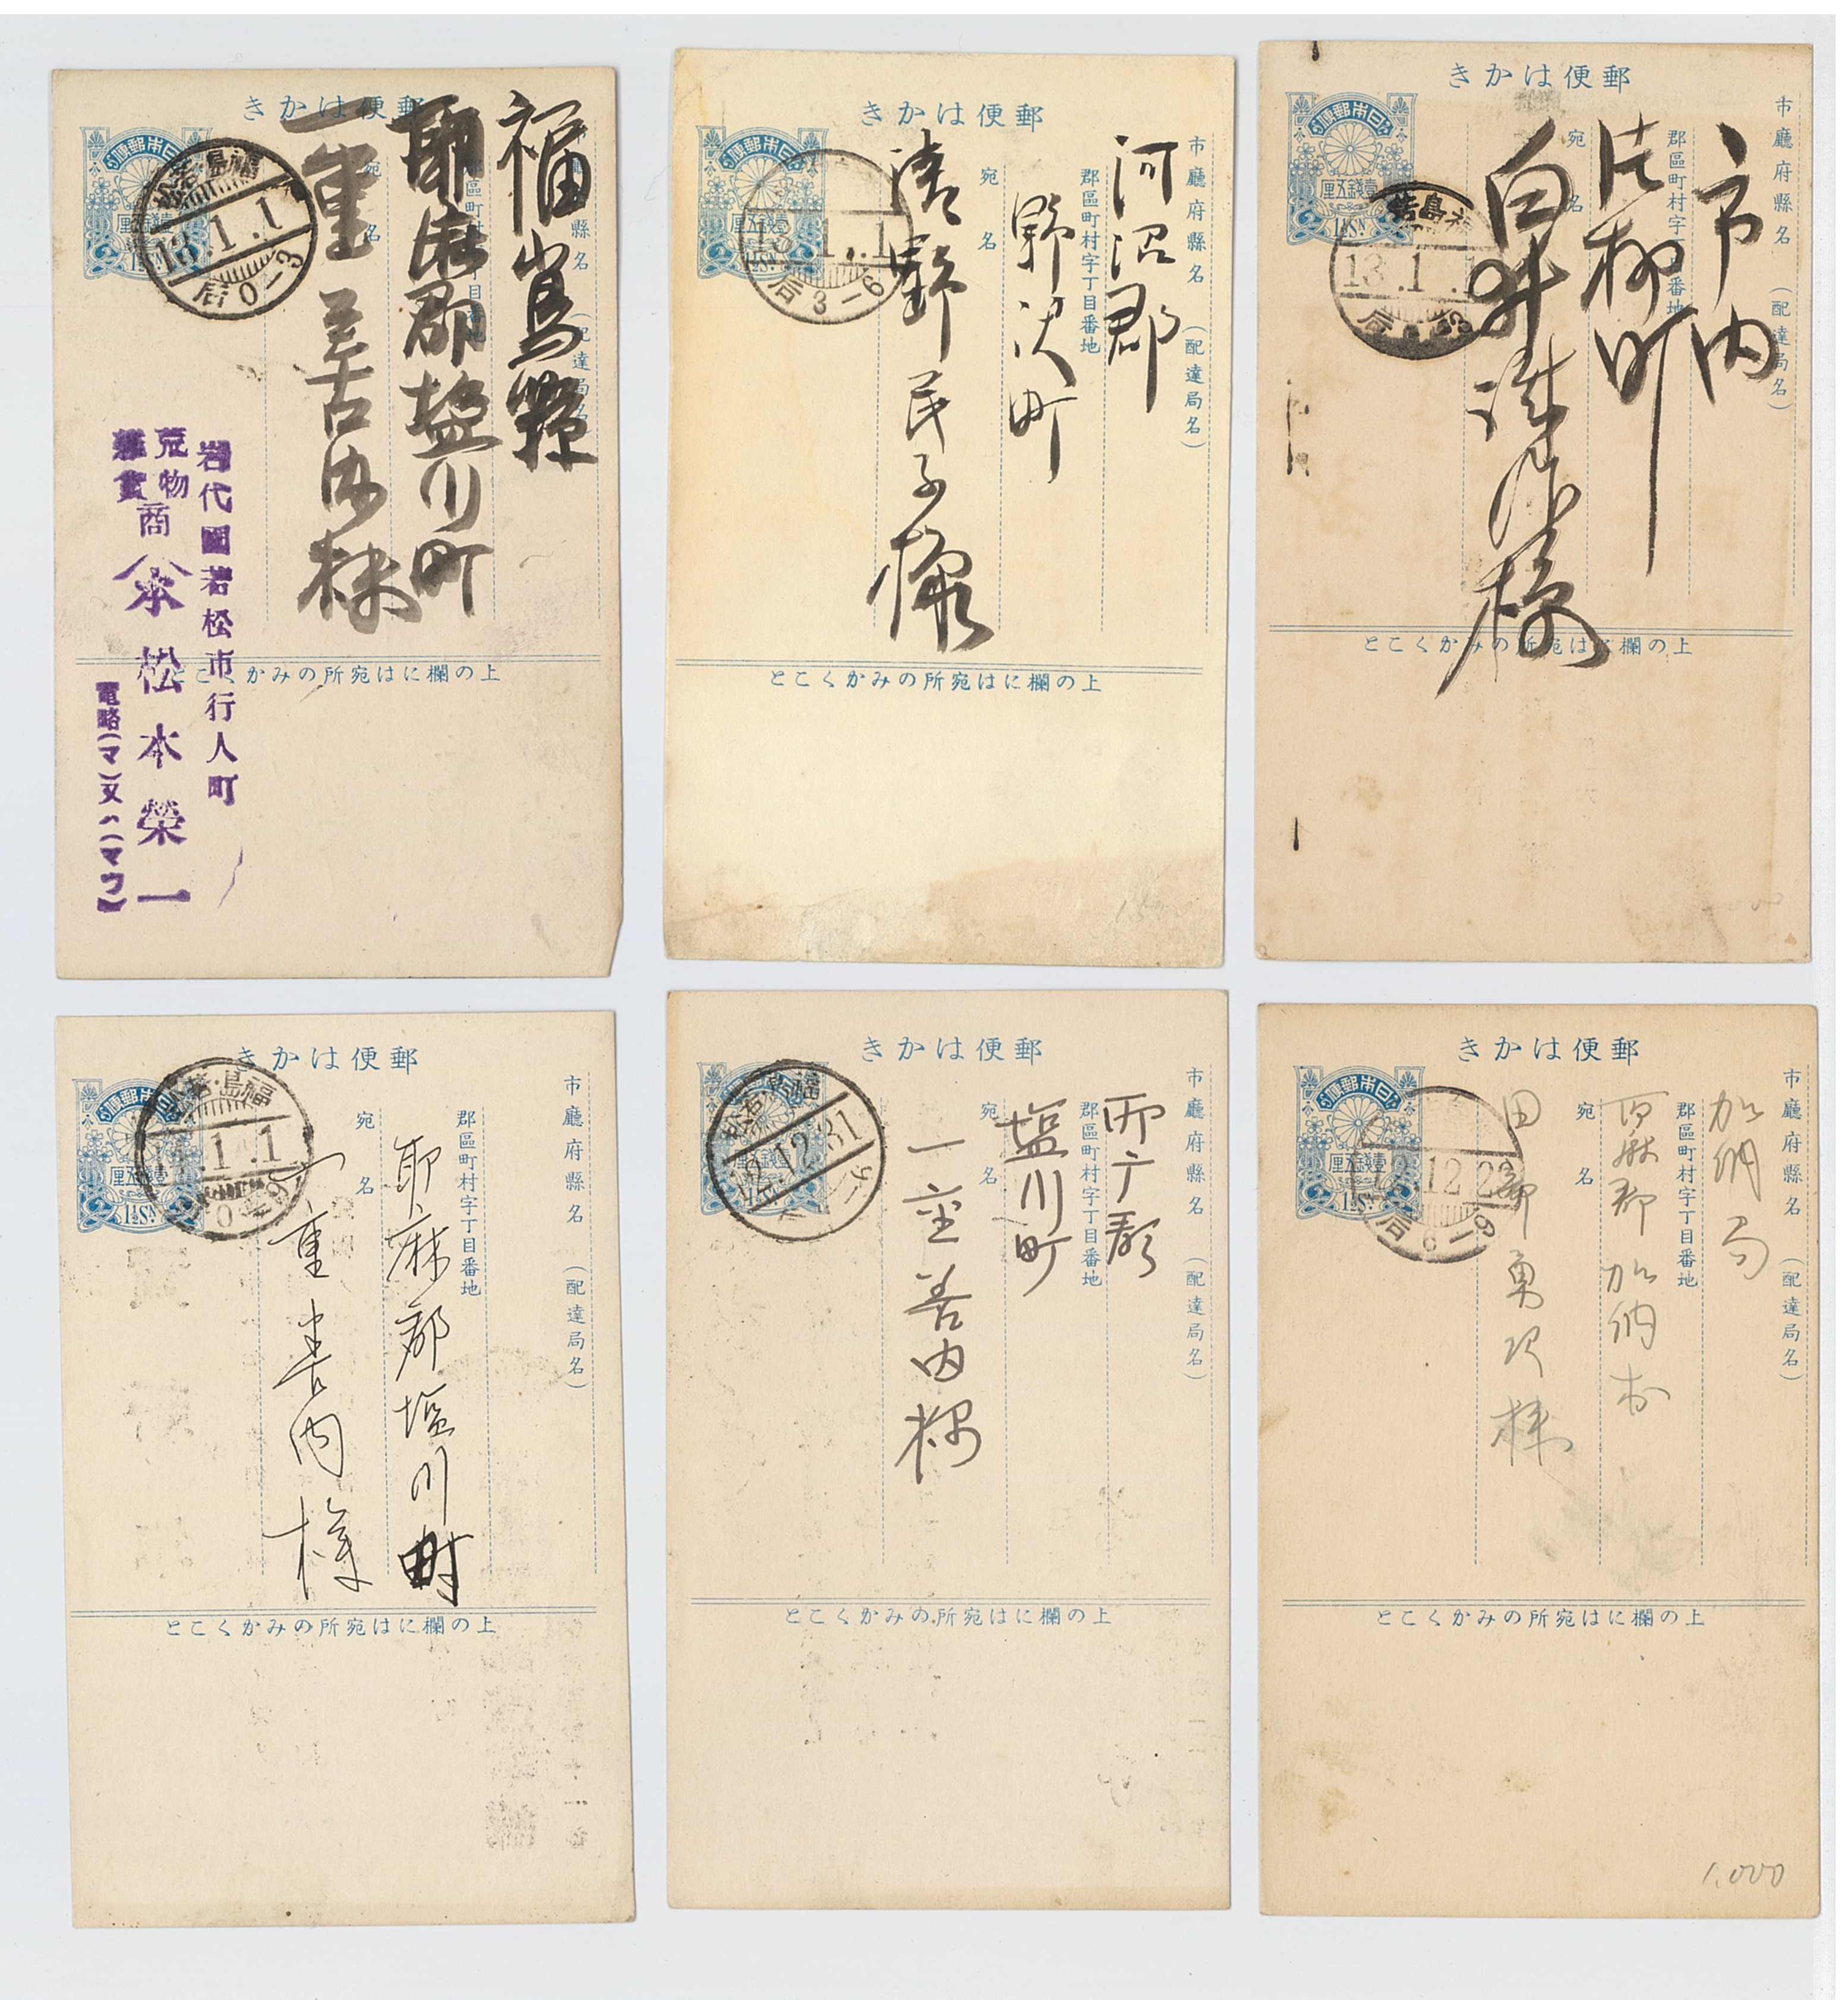 郵便はかき
大日本帝國郵便
壹錢五厘
1½Sn
福島・若松
13.1.1
后0-3
市廳府縣名(配達局名)
郡區町村字丁目番地
宛名
福島縣
耶麻郡塩川町
一重善内様
上の欄には宛所のみかくこと
岩代國若松市行人町
荒物
雜貨
商
松本榮一
電略(マ)又ハ(マツ)
郵便はかき
壹錢五厘
1½Sn
1.1
后3-6
市廳府縣名(配達局名)
郡區町村字丁目番地
宛名
河沼郡
野沢町
民子様
上の欄には宛所のみかくこと
郵便はかき
壹錢五厘
1½Sn
13.1.1
市廳府縣名(配達局名)
郡區町村字丁目番地
宛名
市内
町
白井
様
上の欄には宛所のみかくこと
郵便はかき
壹錢五厘
1½Sn
福島・若松
1.1
市廳府縣名(配達局名)
郡區町村字丁目番地
宛名
耶麻郡塩川町
一重善内様
上の欄には宛所のみかくこと
郵便はかき
壹錢五厘
12.12.31
市廳府縣名(配達局名)
郡區町村字丁目番地
宛名
塩川町
善内様
上の欄には宛所のみかくこと
郵便はかき
壹錢五厘
1½Sn
12
后6-9
市廳府縣名(配達局名)
郡區町村字丁目番地
宛名
加納局
耶麻郡加納村
勇次様
上の欄には宛所のみかくこと
1,000